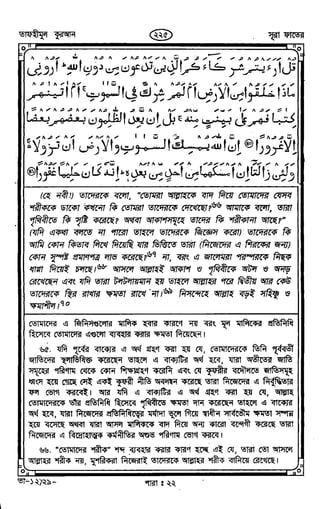 তাফহীমুল কুরআন
২২৫
সূরা ফাতের
قُلْ اَرَءَيْتُمْ شُرَكَآءَكُمُ الَّذِيْنَ تَدْعُوْنَ مِنْ دُوْنِ اللّٰهِ ؕ اَرُوْنِيْ
مَاذَا خَلَقُوْا مِنَ الْاَرْضِ اَمْ لَهُمْ شِرْكٌ فِي السَّمٰوٰتِ ۚ اَمْ اٰتَيْنٰهُمْ
كِتٰبًا فَهُمْ عَلٰى بَيِّنَتٍ مِّنْهُ ۚ بَلْ اِنْ يَّعِدُ الظّٰلِمُوْنَ بَعْضُهُمْ بَعْضًا
اِلَّا غُرُوْرًا ۞ اِنَّ اللّٰهَ يُمْسِكُ السَّمٰوٰتِ وَالْاَرْضَ اَنْ تَزُوْلَا ۚ
وَلَئِنْ زَالَتَآ اِنْ اَمْسَكَهُمَا مِنْ اَحَدٍ مِّنْ بَعْدِهٖ ؕ اِنَّهٗ كَانَ حَلِيْمًا غَفُوْرًا ۞
(হে নবী!) তাদেরকে বলো, "তোমরা আল্লাহকে বাদ দিয়ে তোমাদের যেসব
শরীককে ডাকো কখনো কি তোমরা তাদেরকে দেখেছো?৬৬ আমাকে বলো, তারা
পৃথিবীতে কি সৃষ্টি করেছে? অথবা আকাশসমূহে তাদের কি শরীকানা আছে?"
(যদি একথা বলতে না পারো তাহলে তাদেরকে জিজ্ঞেস করো) তাদেরকে কি
আমি কোন কিতাব লিখে দিয়েছি যার ভিত্তিতে তারা (নিজেদের এ শিরকের জন্য)
কোন সুস্পষ্ট প্রমাণপত্র লাভ করেছে?৬৭ না, বরং এ জালেমরা পরস্পরকে নিছক
ধাপ্পা দিয়েই চলছে।৬৮ আসলে আল্লাহই আকাশ ও পৃথিবীকে অটল ও অনড়
রেখেছেন এবং যদি তারা টলটলায়মান হয় তাহলে আল্লাহর পরে দ্বিতীয় আর কেউ
তাদেরকে স্থির রাখার ক্ষমতা রাখে না।৬৯ নিসন্দেহে আল্লাহ বড়ই সহিষ্ণু ও
ক্ষমাশীল।৭০
তোমাদের এ জিনিসগুলোর মালিক হবার কারণে নয় বরং মূল মালিকের প্রতিনিধি
হিসেবে তোমাদের এগুলো ব্যবহার করার ক্ষমতা দিয়েছেন।
৬৫. যদি পূর্বের বাক্যের এ অর্থ গ্রহণ করা হয় যে, তোমাদেরকে তিনি পূর্ববর্তী
জাতিদের স্থলাভিষিক্ত করেছেন তাহলে এ বাক্যটির অর্থ হবে, যারা অতীতের জাতি
সমূহের পরিণাম থেকে কোন শিক্ষাগ্রহণ করেনি এবং যে কুফরীর বদৌলতে জাতিসমূহ
ধ্বংস হয়ে গেছে সেই একই কুফরী নীতি অবলম্বন করেছে তারা নিজেদের এ নির্বুদ্ধিতার
ফল ভোগ করবেই। আর যদি এ বাক্যটির এ অর্থ গ্রহণ করা হয় যে, আল্লাহ
তোমাদেরকে তাঁর প্রতিনিধি হিসেবে পৃথিবীতে ক্ষমতা দান করেছেন তাহলে এ বাক্যের
অর্থ হবে, যারা নিজেদের প্রতিনিধিত্বের মর্যাদা ভুলে গিয়ে স্বাধীন সার্বভৌম ক্ষমতা সম্পন্ন
হয়ে বসেছে অথবা যারা আসল মালিককে বাদ দিয়ে অন্য কারো বন্দেগী করেছে তারা
নিজেদের এ বিদ্রোহাত্মক কর্মনীতির অশুভ পরিণাম ভোগ করবে।
৬৬. "তোমাদের শরীক" শব্দ ব্যবহার করার কারণ হচ্ছে এই যে, তারা তো আসলে
আল্লাহর শরীক নয়, মুশরিকরা নিজেরাই তাদেরকে আল্লাহর শরীক বানিয়ে রেখেছে।
তা-১২/২৯-
পারা ঃ ২২